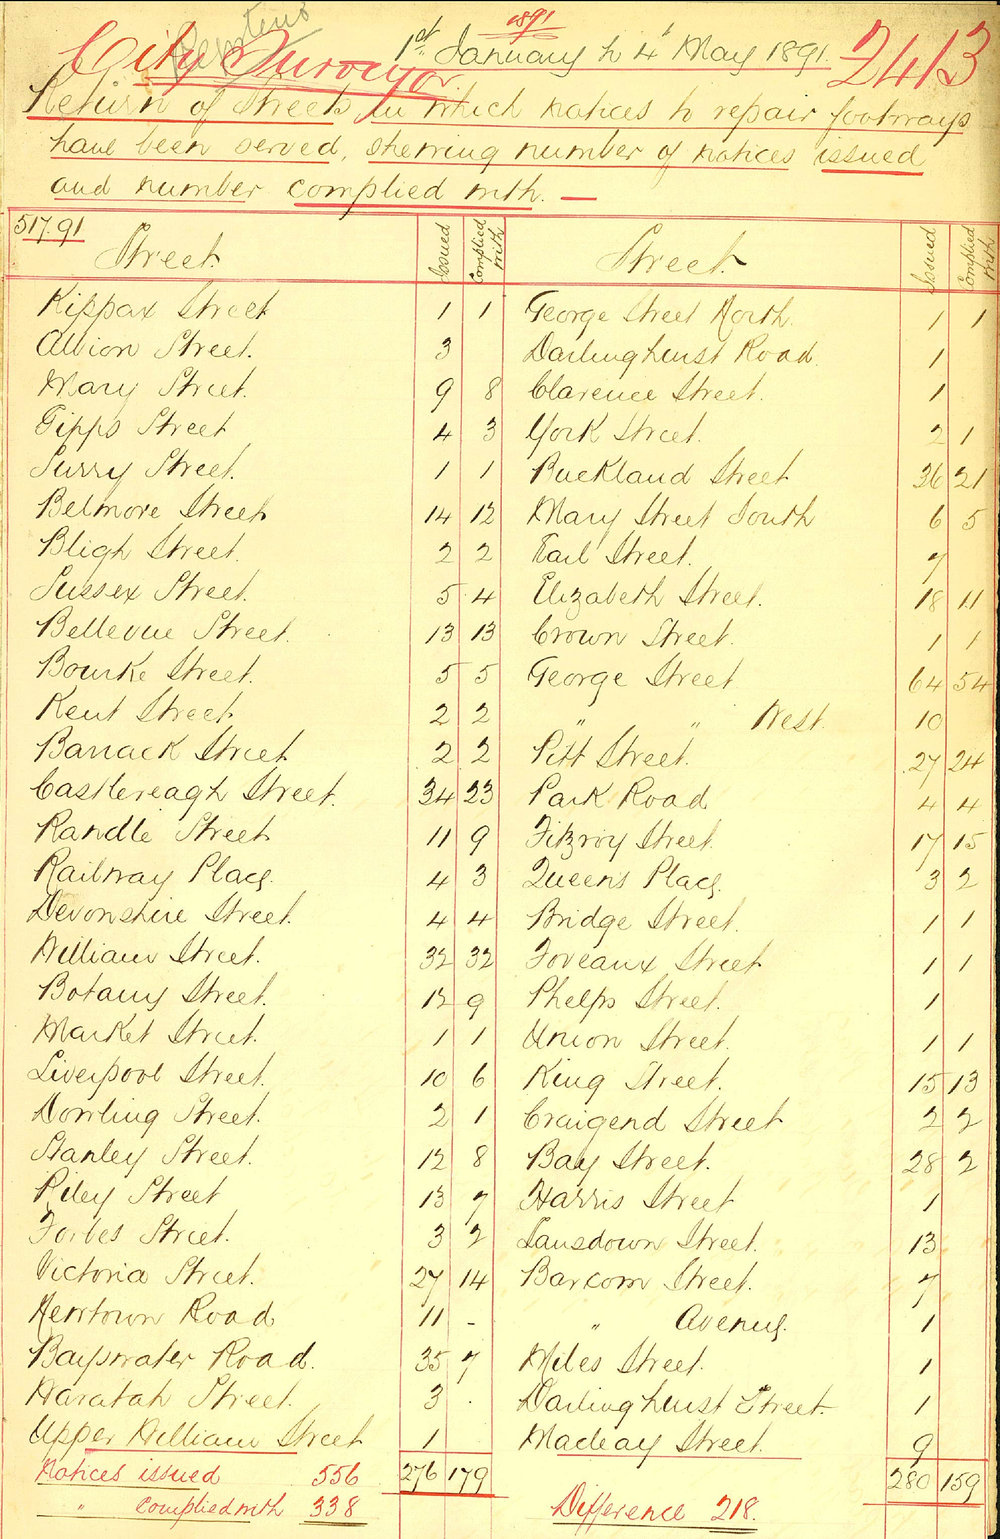 1891
1st January to 4th May 1891.
2413
City Surveyor
Return of Streets in which notices to repair footways
have been served, shewing number of notices issued
and number complied with. —
517.91
Street. Issued Complied with Street. Issued Complied with
Kippax Street 1 1 George Street North. 1 1
Albion Street. 3 Darlinghurst Road 1
Mary Street. 9 8 Clarence Street. 1
Gipps Street 4 3 York Street. 2 1
Surry Street. 1 1 Buckland Street 36 21
Belmore Street 14 12 Mary Street South 6 5
Bligh Street. 2 2 Earl Street. 7
Sussex Street. 5 4 Elizabeth Street. 18 11
Bellevue Street. 13 13 Crown Street. 1 1
Bourke Street. 5 5 George Street 64 54
Kent Street 2 2 " " West. 10
Barrack Street 2 2 Pitt Street. 27 24
Castlereagh Street. 34 23 Park Road 4 4
Randle Street 11 9 Fitzroy Street. 17 15
Railway Place. 4 3 Queens Place. 3 2
Devonshire Street. 4 4 Bridge Street. 1 1
William Street. 32 32 Foveaux Street 1 1
Botany Street. 12 9 Phelps Street. 1
Market Street. 1 1 Union Street. 1 1
Liverpool Street. 10 6 King Street. 15 13
Dowling Street. 2 1 Craigend Street 2 2
Stanley Street. 12 8 Bay Street. 28 2
Riley Street 13 7 Harris Street 1
Forbes Street. 3 2 Lansdown Street. 13
Victoria Street. 27 14 Barcom Street. 7
Newtown Road 11 - " Avenue. 1
Bayswater Road. 35 7 Miles Street. 1
Waratah Street. 3 . Darlinghurst Street 1
Upper William Street 1 Macleay Street. 9
Notices issued 556 276 179 280 159
" complied with 338 Difference 218.